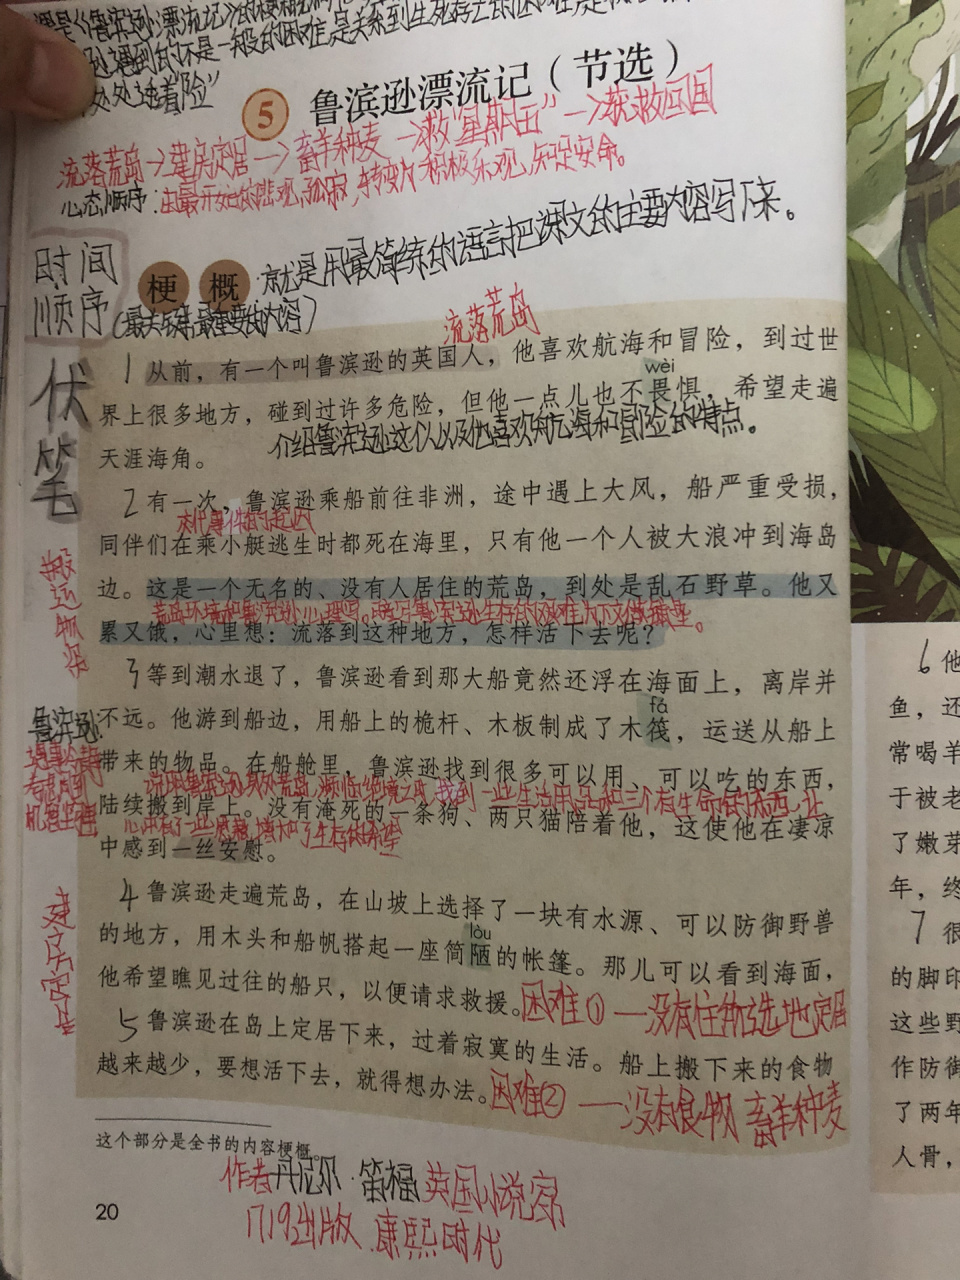 是《鲁滨逊漂流记》的梗概
遇到的不是一般的困难,是关系到生死存亡的困难,是
处处透着"险"
5 鲁滨逊漂流记（节选）
流落荒岛→建房定居→畜羊种麦→救"星期五"→获救回国
心态顺序:由最开始的悲观,孤寂,转变为积极乐观,知足安命。
时间
顺序
梗概:就是用最简练的语言把课文的主要内容写下来。
(最关键,最重要的内容)
流落荒岛
伏
笔
1 从前，有一个叫鲁滨逊的英国人，他喜欢航海和冒险，到过世
wèi
界上很多地方，碰到过许多危险，但他一点儿也不畏惧，希望走遍
天涯海角。
介绍鲁滨逊这个人以及他喜欢航海和冒险的特点。
2 有一次，鲁滨逊乘船前往非洲，途中遇上大风，船严重受损，
交代事件的起因
同伴们在乘小艇逃生时都死在海里，只有他一个人被大浪冲到海岛
边。这是一个无名的、没有人居住的荒岛，到处是乱石野草。他又
累又饿，心里想：流落到这种地方，怎样活下去呢？
搬运物资
3 等到潮水退了，鲁滨逊看到那大船竟然还浮在海面上，离岸并
fá
不远。他游到船边，用船上的桅杆、木板制成了木筏，运送从船上
鲁滨逊:
遇事冷静
考虑周到
机智坚强
带来的物品。在船舱里，鲁滨逊找到很多可以用、可以吃的东西，
陆续搬到岸上。没有淹死的一条狗、两只猫陪着他，这使他在凄凉
中感到一丝安慰。
4 鲁滨逊走遍荒岛，在山坡上选择了一块有水源、可以防御野兽
lòu
的地方，用木头和船帆搭起一座简陋的帐篷。那儿可以看到海面，
他希望瞧见过往的船只，以便请求救援。困难① —没有住所 选地定居
建房定居
5 鲁滨逊在岛上定居下来，过着寂寞的生活。船上搬下来的食物
越来越少，要想活下去，就得想办法。困难② —没有食物 畜羊种麦
这个部分是全书的内容梗概。
作者 丹尼尔·笛福 英国小说家
1719出版 康熙时代
20
6 他
鱼，还
常喝羊
于被老
了嫩芽
年，终
7 很
的脚印
这些野
作防御
了两年
人骨，